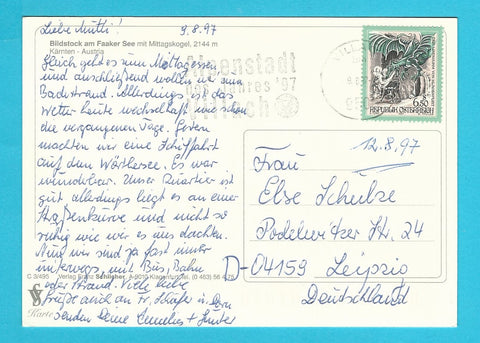 Liebe Mutti! 9.8.97
Bildstock am Faaker See mit Mittagskogel, 2144 m
Kärnten - Austria
Gleich geht es zum Mittagessen
und anschließend wollen wir zum
Badestrand. Allerdings ist das
Wetter heute wechselhaft wie schon
die vergangenen Tage. Gestern
machten wir eine Schiffahrt
auf dem Wörthersee. Es war
wunderbar. Unser Quartier ist
gut, allerdings liegt es an einer
Straßenkurve und nicht so
ruhig wie wir es uns dachten.
Nun wir sind ja fast immer
unterwegs, mit Bus, Bahn
oder Strand. Viele liebe
Grüße auch an Fr. Schäfer u.
senden Deine Cornelius + Günter
C 3/495 Verlag Franz Schilcher, A-9010 Klagenfurt
VS
Karte
Alpenstadt
des Jahres '97
Villach
VILLACH
6.50
REPUBLIK ÖSTERREICH
12.8.97
Frau
Else Schulze
Podelwitzer Str. 24
D-04159 Leipzig
Deutschland